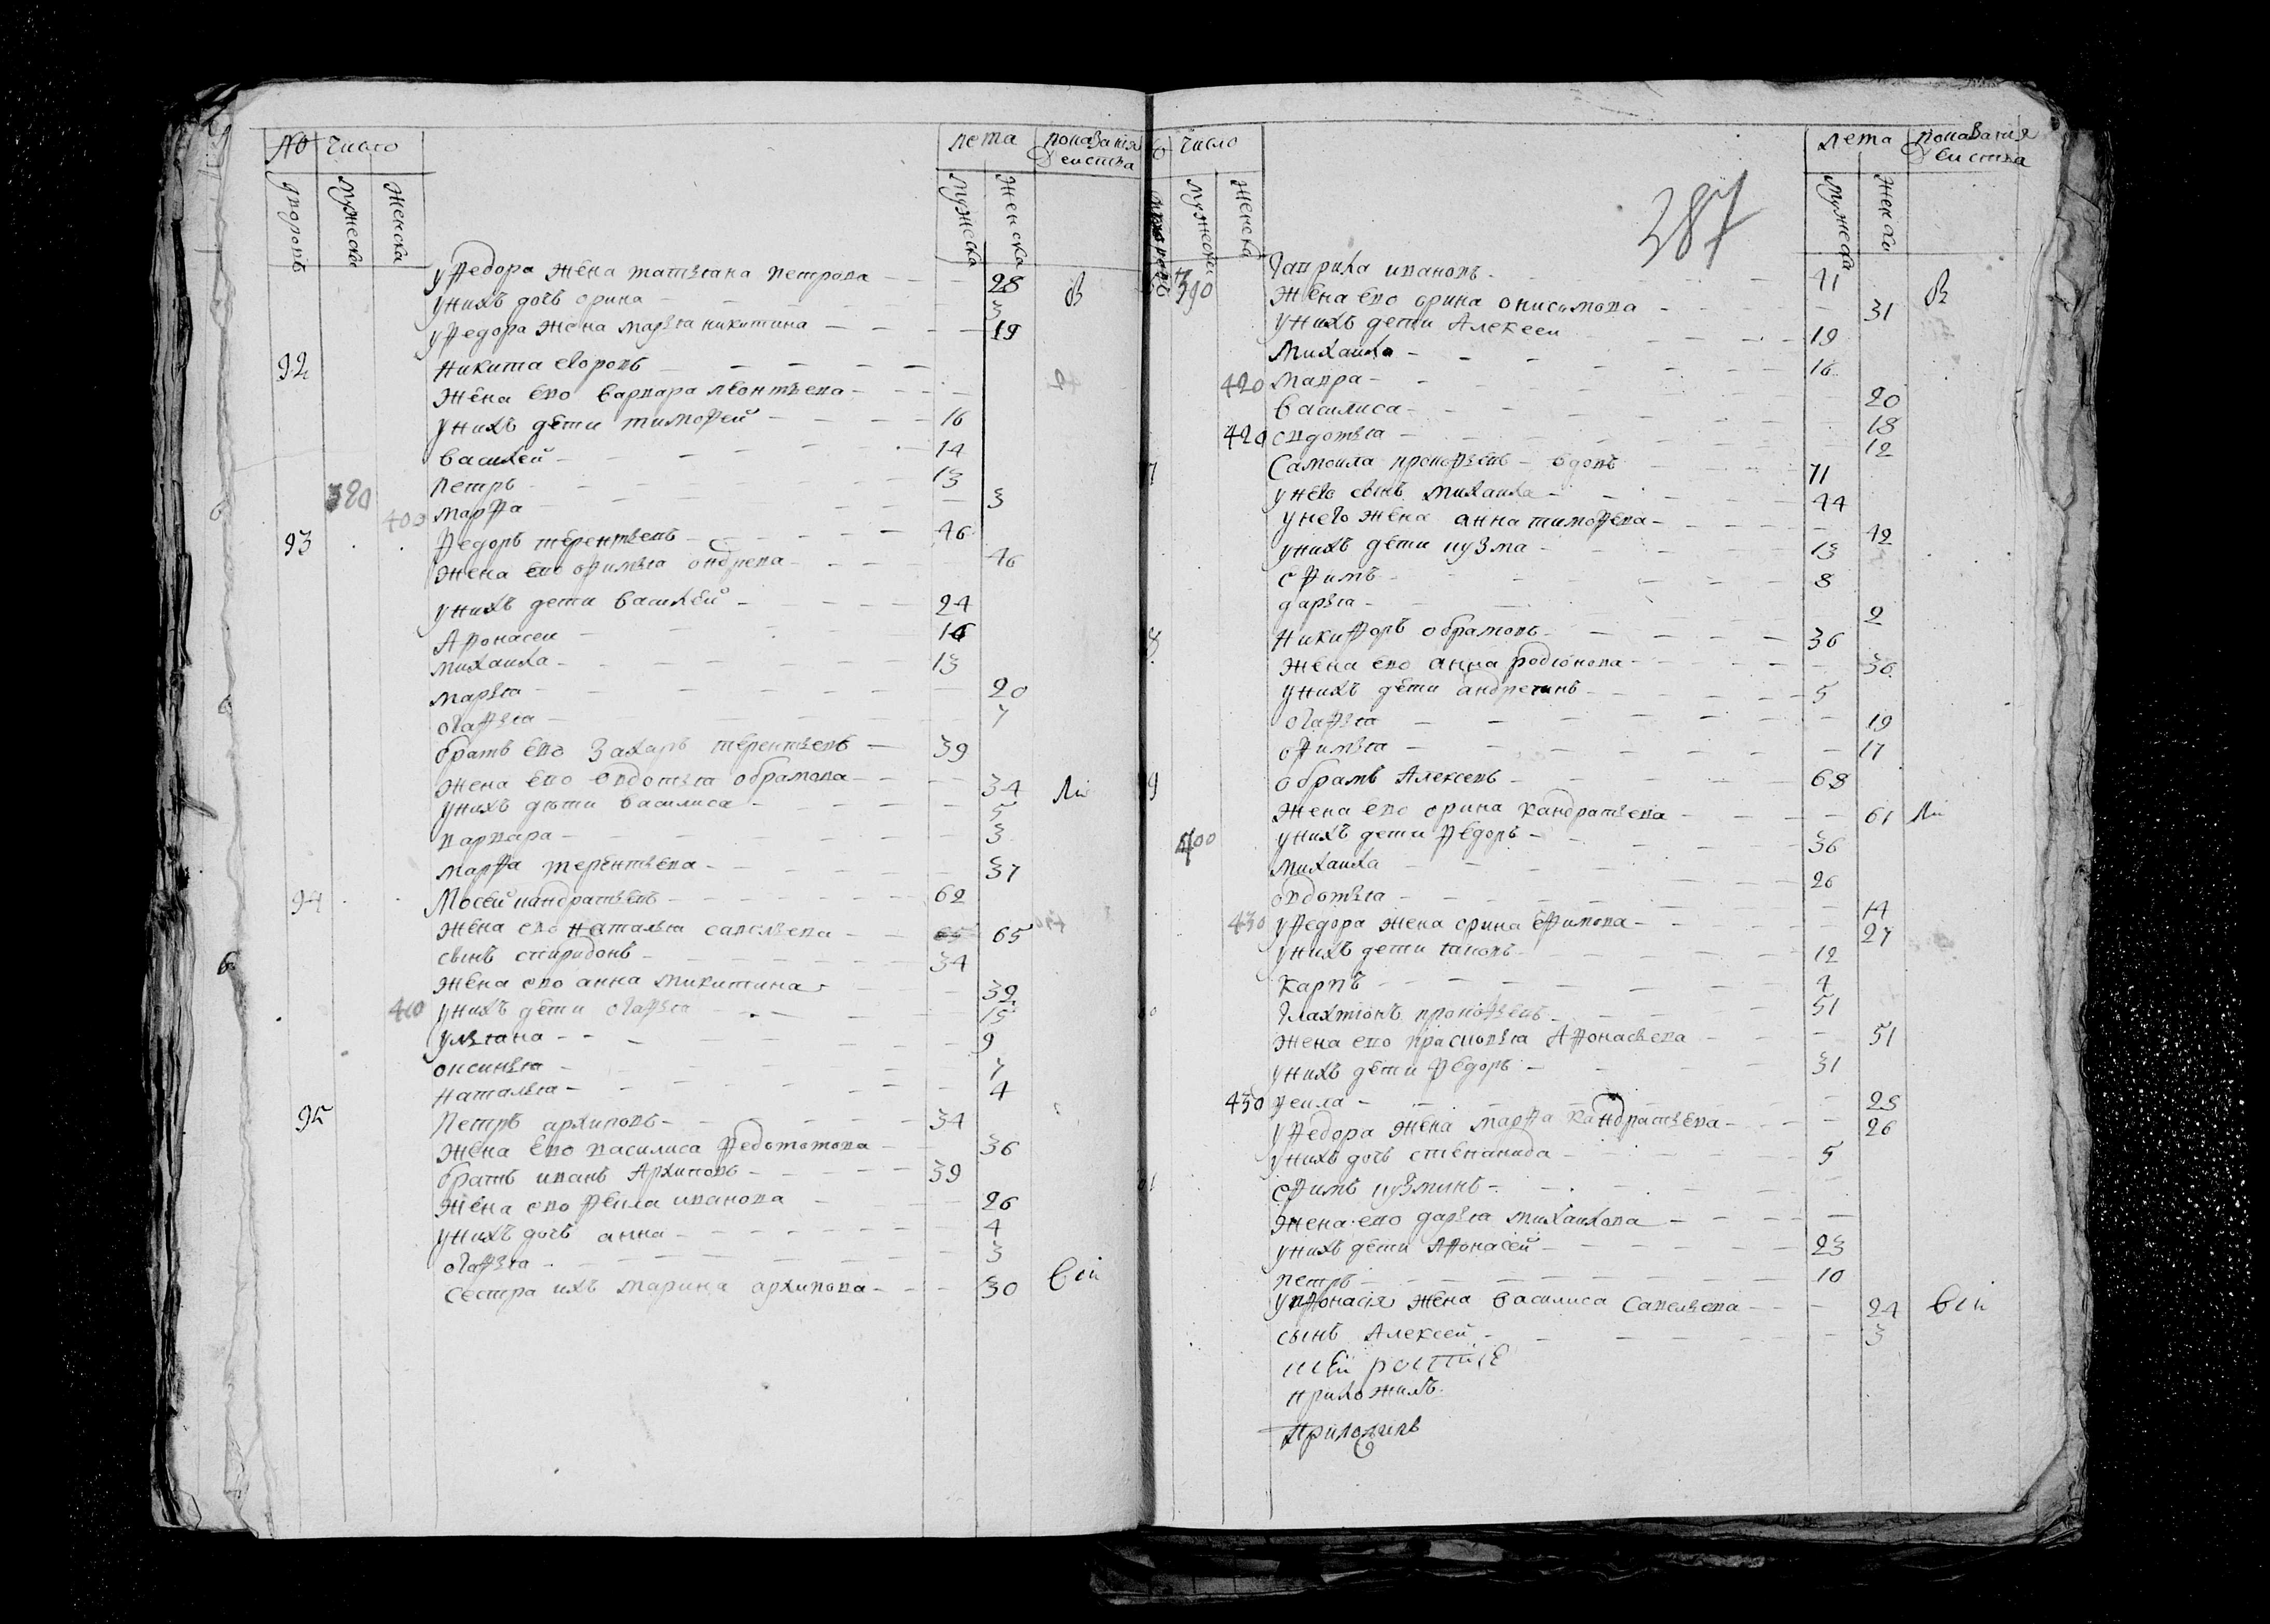 № число лета показания деиства
дворовъ мужеска женска мужеска женска
у Федора жена татьяна петрова 28 В
у нихъ дочь орина 3
у Федора жена марья никитина 19
92 Никита егоровъ
жена ево варвара леонтьева
у нихъ дети тимофей 16
василей 14
380 петръ 13
400 марфа 3
93 Федоръ терентьевъ 46
жена ево офимья ондрева 46
у нихъ дети василей 24
Афонасеи 16
михаила 13
марья 20
огафья 7
братъ ево Захаръ терентьевъ 39
жена ево овдотья обрамова 34 Ли
у нихъ дети василиса 5
варвара 3
марфа терентьева 37
94 Мосей кандратьевъ 62
жена ево наталья савельева 65 65
сынъ спиридонъ 34
жена ево анна микитина 32
410 у нихъ дети огафья 15
ульяна 9
оксинья 7
наталья 4
95 Петръ архиповъ 34
жена ево василиса федототова 36
братъ иванъ Архиповъ 39
жена ево фекла иванова 26
у нихъ дочь анна 4
огафья 3
сестра ихъ марина архипова 30
число лета показания деиства
мужеска женска мужеска женска
387
390 гаврила ивановъ 41 В
жена ево орина онисимова 31
у нихъ дети Алексеи 19
михаила 16
420 мавра 20
василиса 18
420 овдотья 12
7 Самоила прокофьевъ вдовъ 71
у него сынъ михаила 44
у него жена анна тимофева 42
у нихъ дети кузма 13
ефимъ 8
дарья 2
8 Никифоръ обрамовъ 36
жена ево анна родионова 36
у нихъ дети андреянъ 5
огафья 19
офимья 17
9 обрамъ Алексевъ 68
жена ево орина кандратьева 61 Ли
400 у нихъ дети Федоръ 36
михаила 26
овдотья 14
430 у Федора жена орина ефимова 27
у нихъ дети иаковъ 12
карпъ 4
галахтионъ прокофьевъ 51
жена ево прасковья Афонасьева 51
у нихъ дети федоръ 31
430 фекла 28
у Федора жена марфа кандратьева 26
у нихъ дочь степанида 5
ефимъ кузминъ
жена ево дарья михаилова
у нихъ дети Афонасей 23
петръ 10
у Афонасия жена василиса савельева 24
сынъ Алексей 3
приложилъ